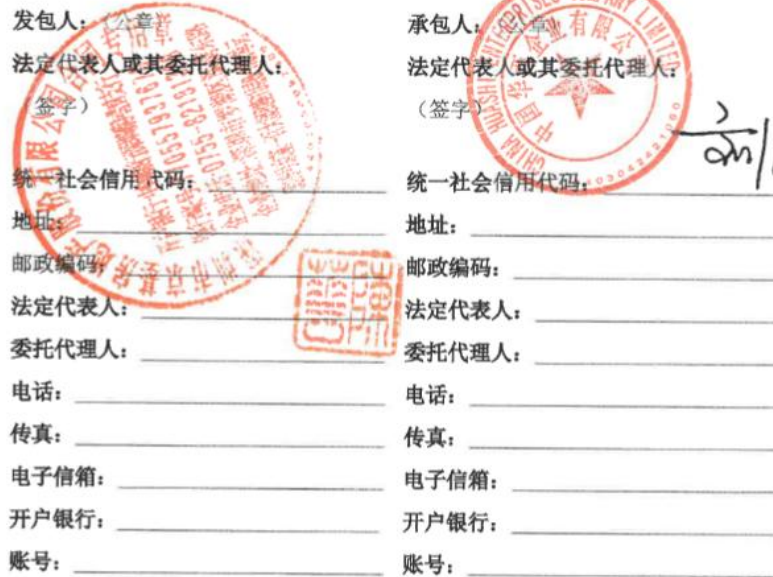 发包人：（公章）
法定代表人或其委托代理人：
（签字）
统一社会信用代码：
地址：
邮政编码：
法定代表人：
委托代理人：
电话：
传真：
电子信箱：
开户银行：
账号：
承包人：（公章）
法定代表人或其委托代理人：
（签字）
统一社会信用代码：
地址：
邮政编码：
法定代表人：
委托代理人：
电话：
传真：
电子信箱：
开户银行：
账号：
股份有限公司合同专用章
中国华西企业有限公司
LIMITED